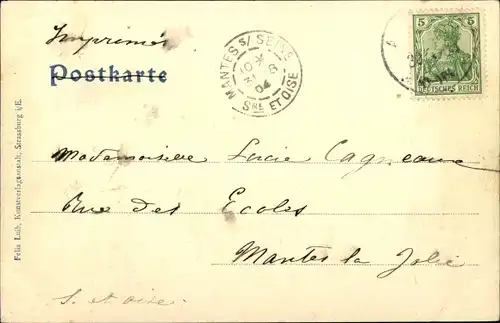 Imprimés
Postkarte
MANTES S/ SEINE
10 *
31 8
04
SNE ET OISE
5 5
DEUTSCHES REICH
Mademoiselle Lucie Cagneaux
Rue des Ecoles
Mantes la Jolie
S. et oise.
Felix Luib, Kunstverlagsanstalt, Strassburg i/E.